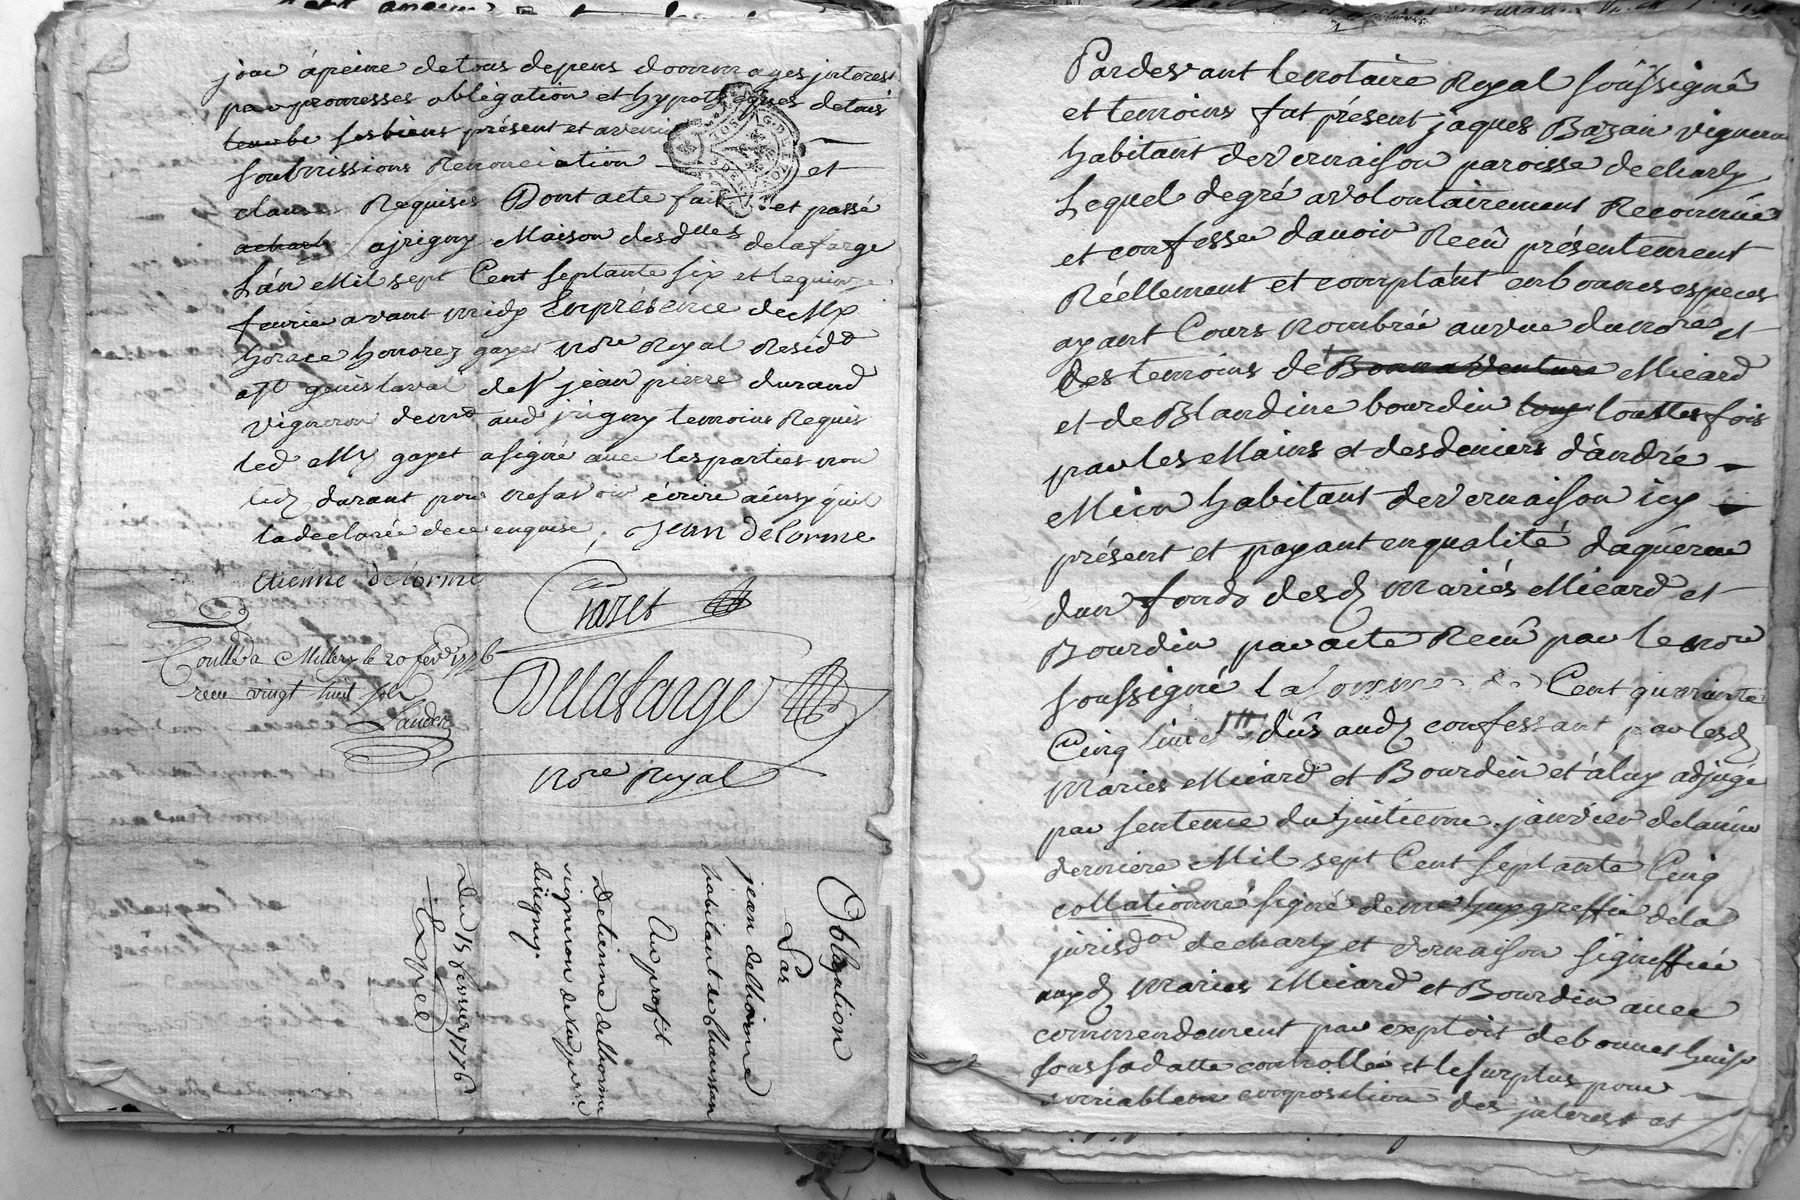 jour à peine de tous depens dommages interest
par promesses obligation et hypotheques de tous
ses biens présent et avenir
soubmissions Renonciation et
clauses Requises Dont acte fait et passé
a jrigny Maison des dlles delafarge
L'án Mil sept Cent septante six et le quinze
feurier avant midy En présence de Me
horace honorez gayet nore Royal Residt
a st genis laval de sr jean pierre durand
vigneron demt aud jrigny temoins Requis
led Me gayet a signé avec les parties non
led durant pour ne savoir écrire ainsy qu'il
la declaré de ce enquise, Jean Delorme
Etienne delorme
Gayet
Coullé a Millery le 20 fevr 1776
recu vingt huit sols
Delafarge
nore royal
Obligation
Par
jean delhorme
habitant de Chaussan
Au profit
De Etienne delhorme
vigneron
dirigny.
Du 15 fevrier 1776
Expéd
Pardevant le notaire Royal soussigné
et temoins fut présent jaques Bazan vigneron
habitant de vernaison paroisse de charly
Lequel de gré a volontairement Reconnue
et confesse d'auoir Receu présentement
Réellement et comptant en bonnes especes
ayant Cours nombrée au vue du nore et
des temoins de Bonnaventure Micard
et de Blandine bourdin touttes fois
par les Mains et des deniers d'andré
habitant de vernaison icy
présent et payant en qualité d'aquereur
d'un fonds desd mariés Micard et
Bourdin par acte Receu par le nore
soussigné la somme de Cent quarante
Cinq livres dûs aud confessant par lesd
mariés Micard et Bourdin et à luy adjugé
par sentence du huitieme janvier de l'année
derniere Mil sept Cent septante Cinq
collationné signé greffier de la
jurisdon de charly et vernaison signiffiée
auxd mariés Micard et Bourdin avec
commendement par exploit de bonnet huiss
sous sa datte controllée et le surplus pour
composition des jnterest et